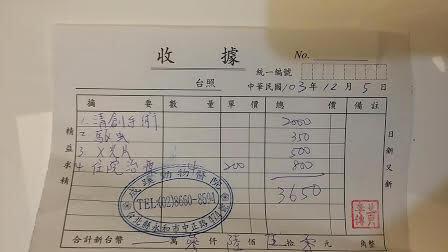 收據
No.
統一編號
台照
中華民國103年12月5日
摘要 數量 單價 總價 備註
1.清創手術 2000
2.驅蟲 350
3.X光片 500
4.住院治療 200 800
3650
精益求精
日新又新
動物醫院
TEL:(02)8660-8594
合計新台幣 萬 參仟 陸佰 伍拾 零 元 角整